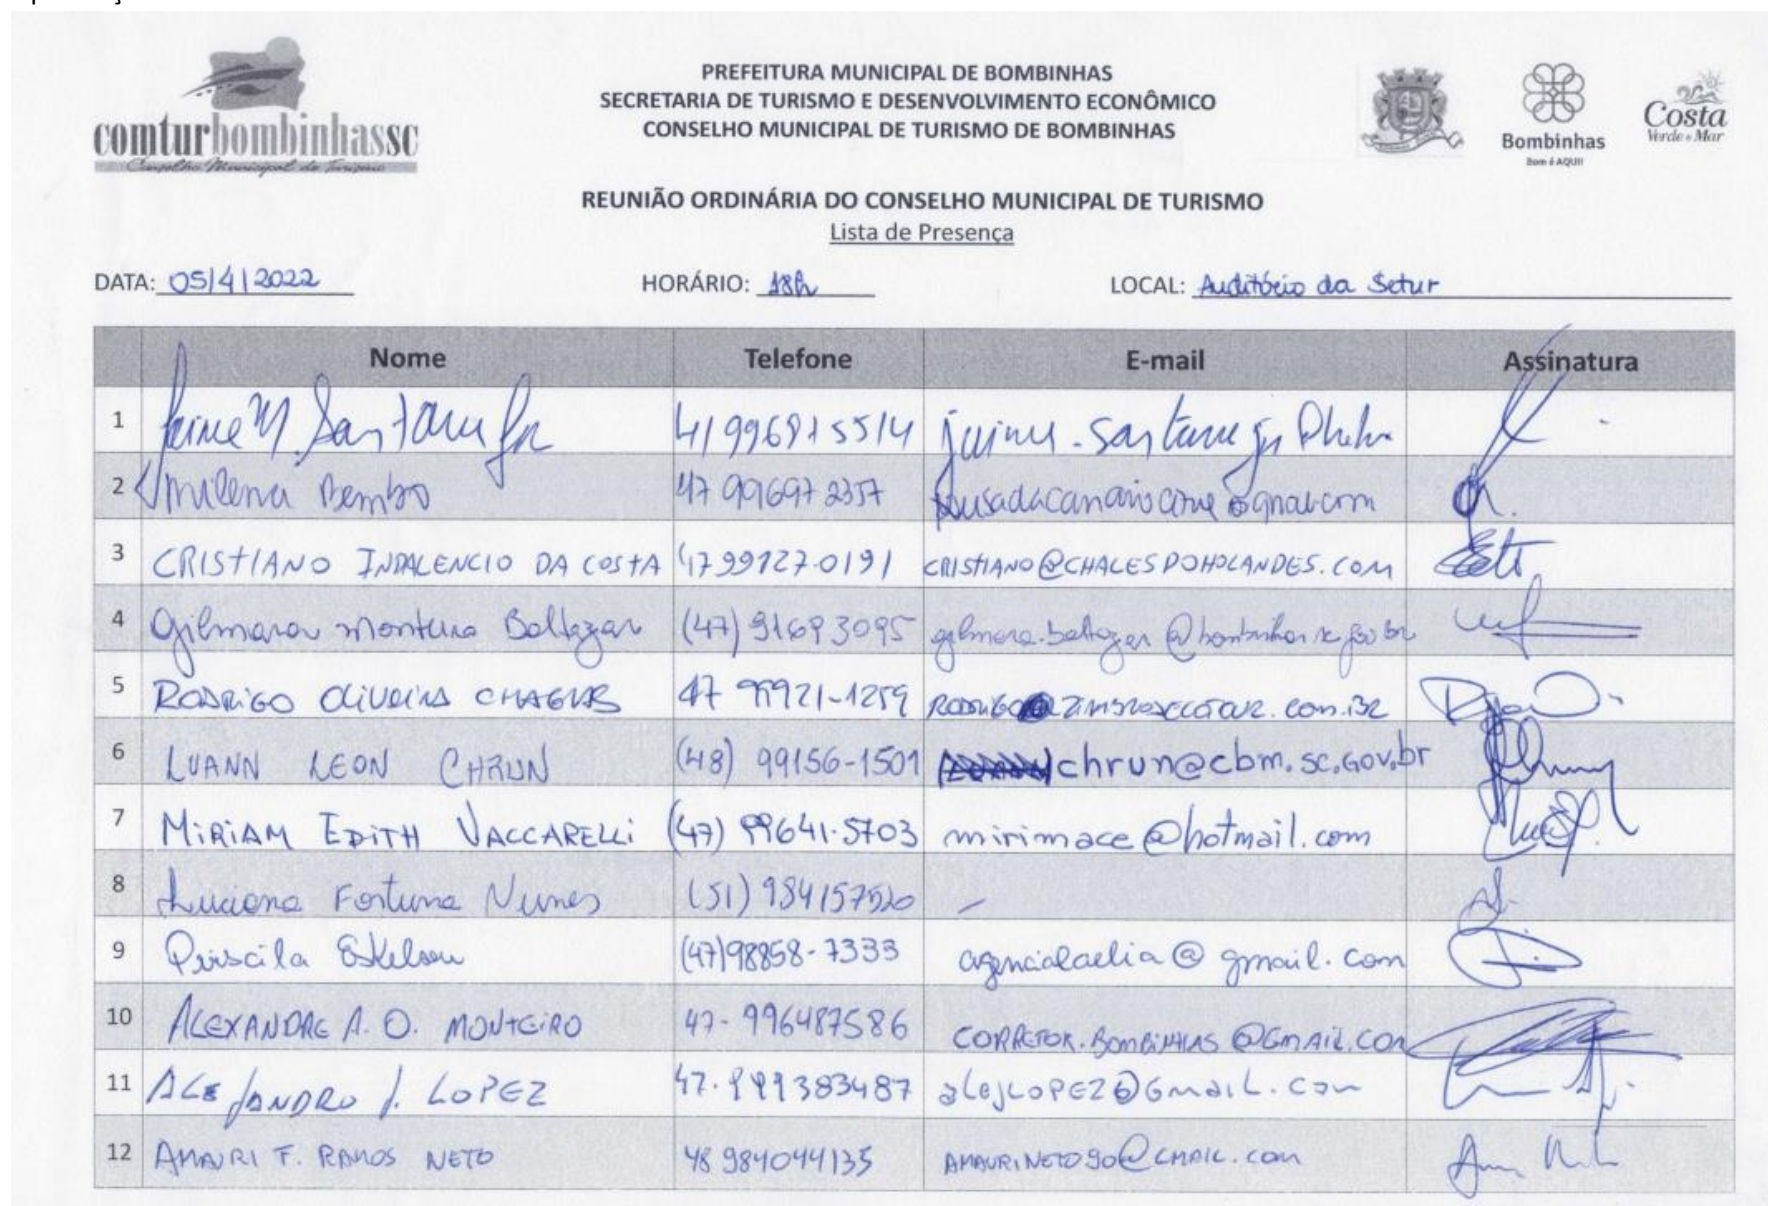 comturbombinhassc
Conselho Municipal de Turismo
PREFEITURA MUNICIPAL DE BOMBINHAS
SECRETARIA DE TURISMO E DESENVOLVIMENTO ECONÔMICO
CONSELHO MUNICIPAL DE TURISMO DE BOMBINHAS
Bombinhas
Bom é AQUI!
Costa
Verde e Mar
REUNIÃO ORDINÁRIA DO CONSELHO MUNICIPAL DE TURISMO
Lista de Presença
DATA: 05/4/2022 HORÁRIO: 18h LOCAL: Auditório da Setur
Nome Telefone E-mail Assinatura
1 Jaime M. Santana Jr
2 Milena Bembo 47 996972357
3 CRISTIANO INDALENCIO DA COSTA 47 991270191 CRISTIANO@CHALESDOHOLANDES.COM
4 Gilmara Monteiro Baltazar (47) 91693095 gilmara.baltazar@bombinhas.sc.gov.br
5 RODRIGO OLIVEIRA CHAGAS 47 99921-1259
6 LUANN LEON CHRUN (48) 99156-1501 chrun@cbm.sc.gov.br
7 MIRIAM EDITH VACCARELLI (47) 99641-5703 mirimace@hotmail.com
8 Luciana Fortuna Nunes (51) 984157520 -
9 Priscila (47)98858-7333 agencialaelia@gmail.com
10 ALEXANDRE A. O. MONTEIRO 47-996487586 CORRETOR.BOMBINHAS@GMAIL.COM
11 ALEJANDRO J. LOPEZ 47.999383487 alejLOPEZ@GmaiL.com
12 AMAURI F. RAMOS NETO 48 984044135 AMAURINETO90@GMAIL.COM